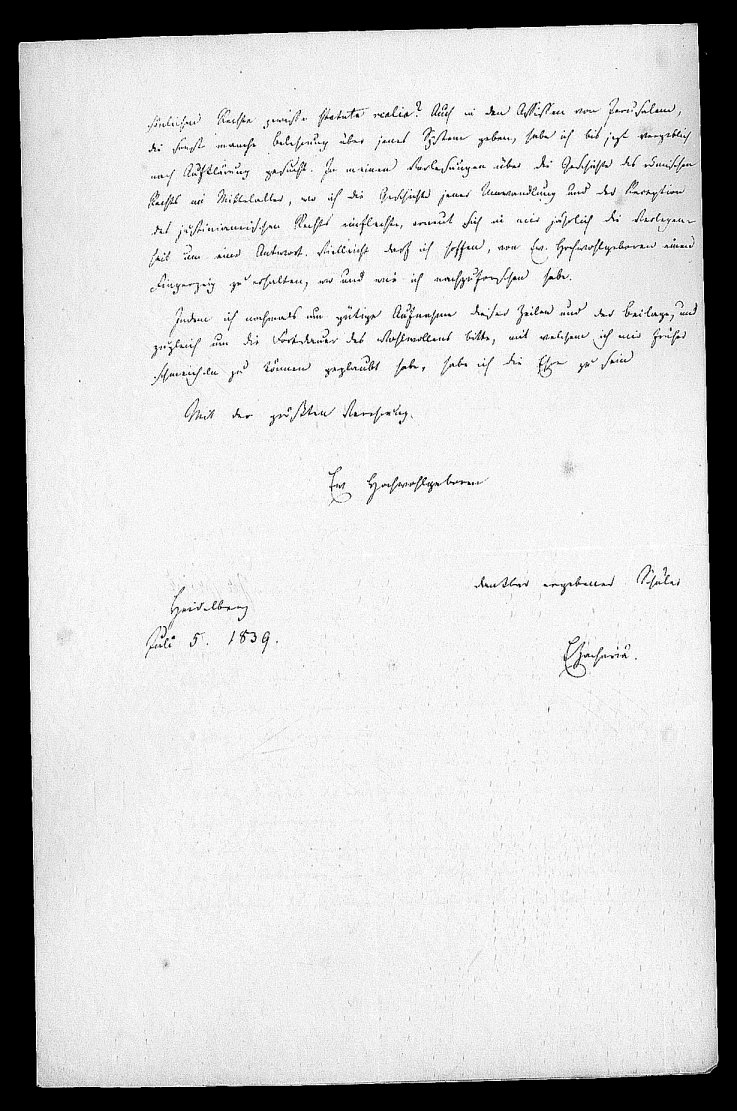 sönlichen Rechte gewisse statuta realia? Auch in den Assisen von Jerusalem,
die sonst manche Belehrung über jenes System geben, habe ich bis jetzt vergeblich
nach Aufklärung gesucht. In meinen Vorlesungen über die Geschichte des römischen
Rechts im Mittelalter, wo ich die Geschichte jener Umwandlung und der Reception
des justinianeischen Rechts einflechte, erneut sich in mir jährlich die Verlegen-
heit um eine Antwort. Vielleicht darf ich hoffen, von Ew. Hochwohlgeboren einen
Fingerzeig zu erhalten, wo und wie ich nachzuforschen habe.
Indem ich nochmals um gütige Aufnahme dieser Zeilen und der Beilage, und
zugleich um die Fortdauer des Wohlwollens bitte, mit welchem ich mir früher
schmeicheln zu können geglaubt habe, habe ich die Ehre zu sein
Mit der größten Verehrung.
Ew Hochwohlgeboren
dankbar ergebener Schüler
Heidelberg
Juli 5. 1839.
EZachariä.